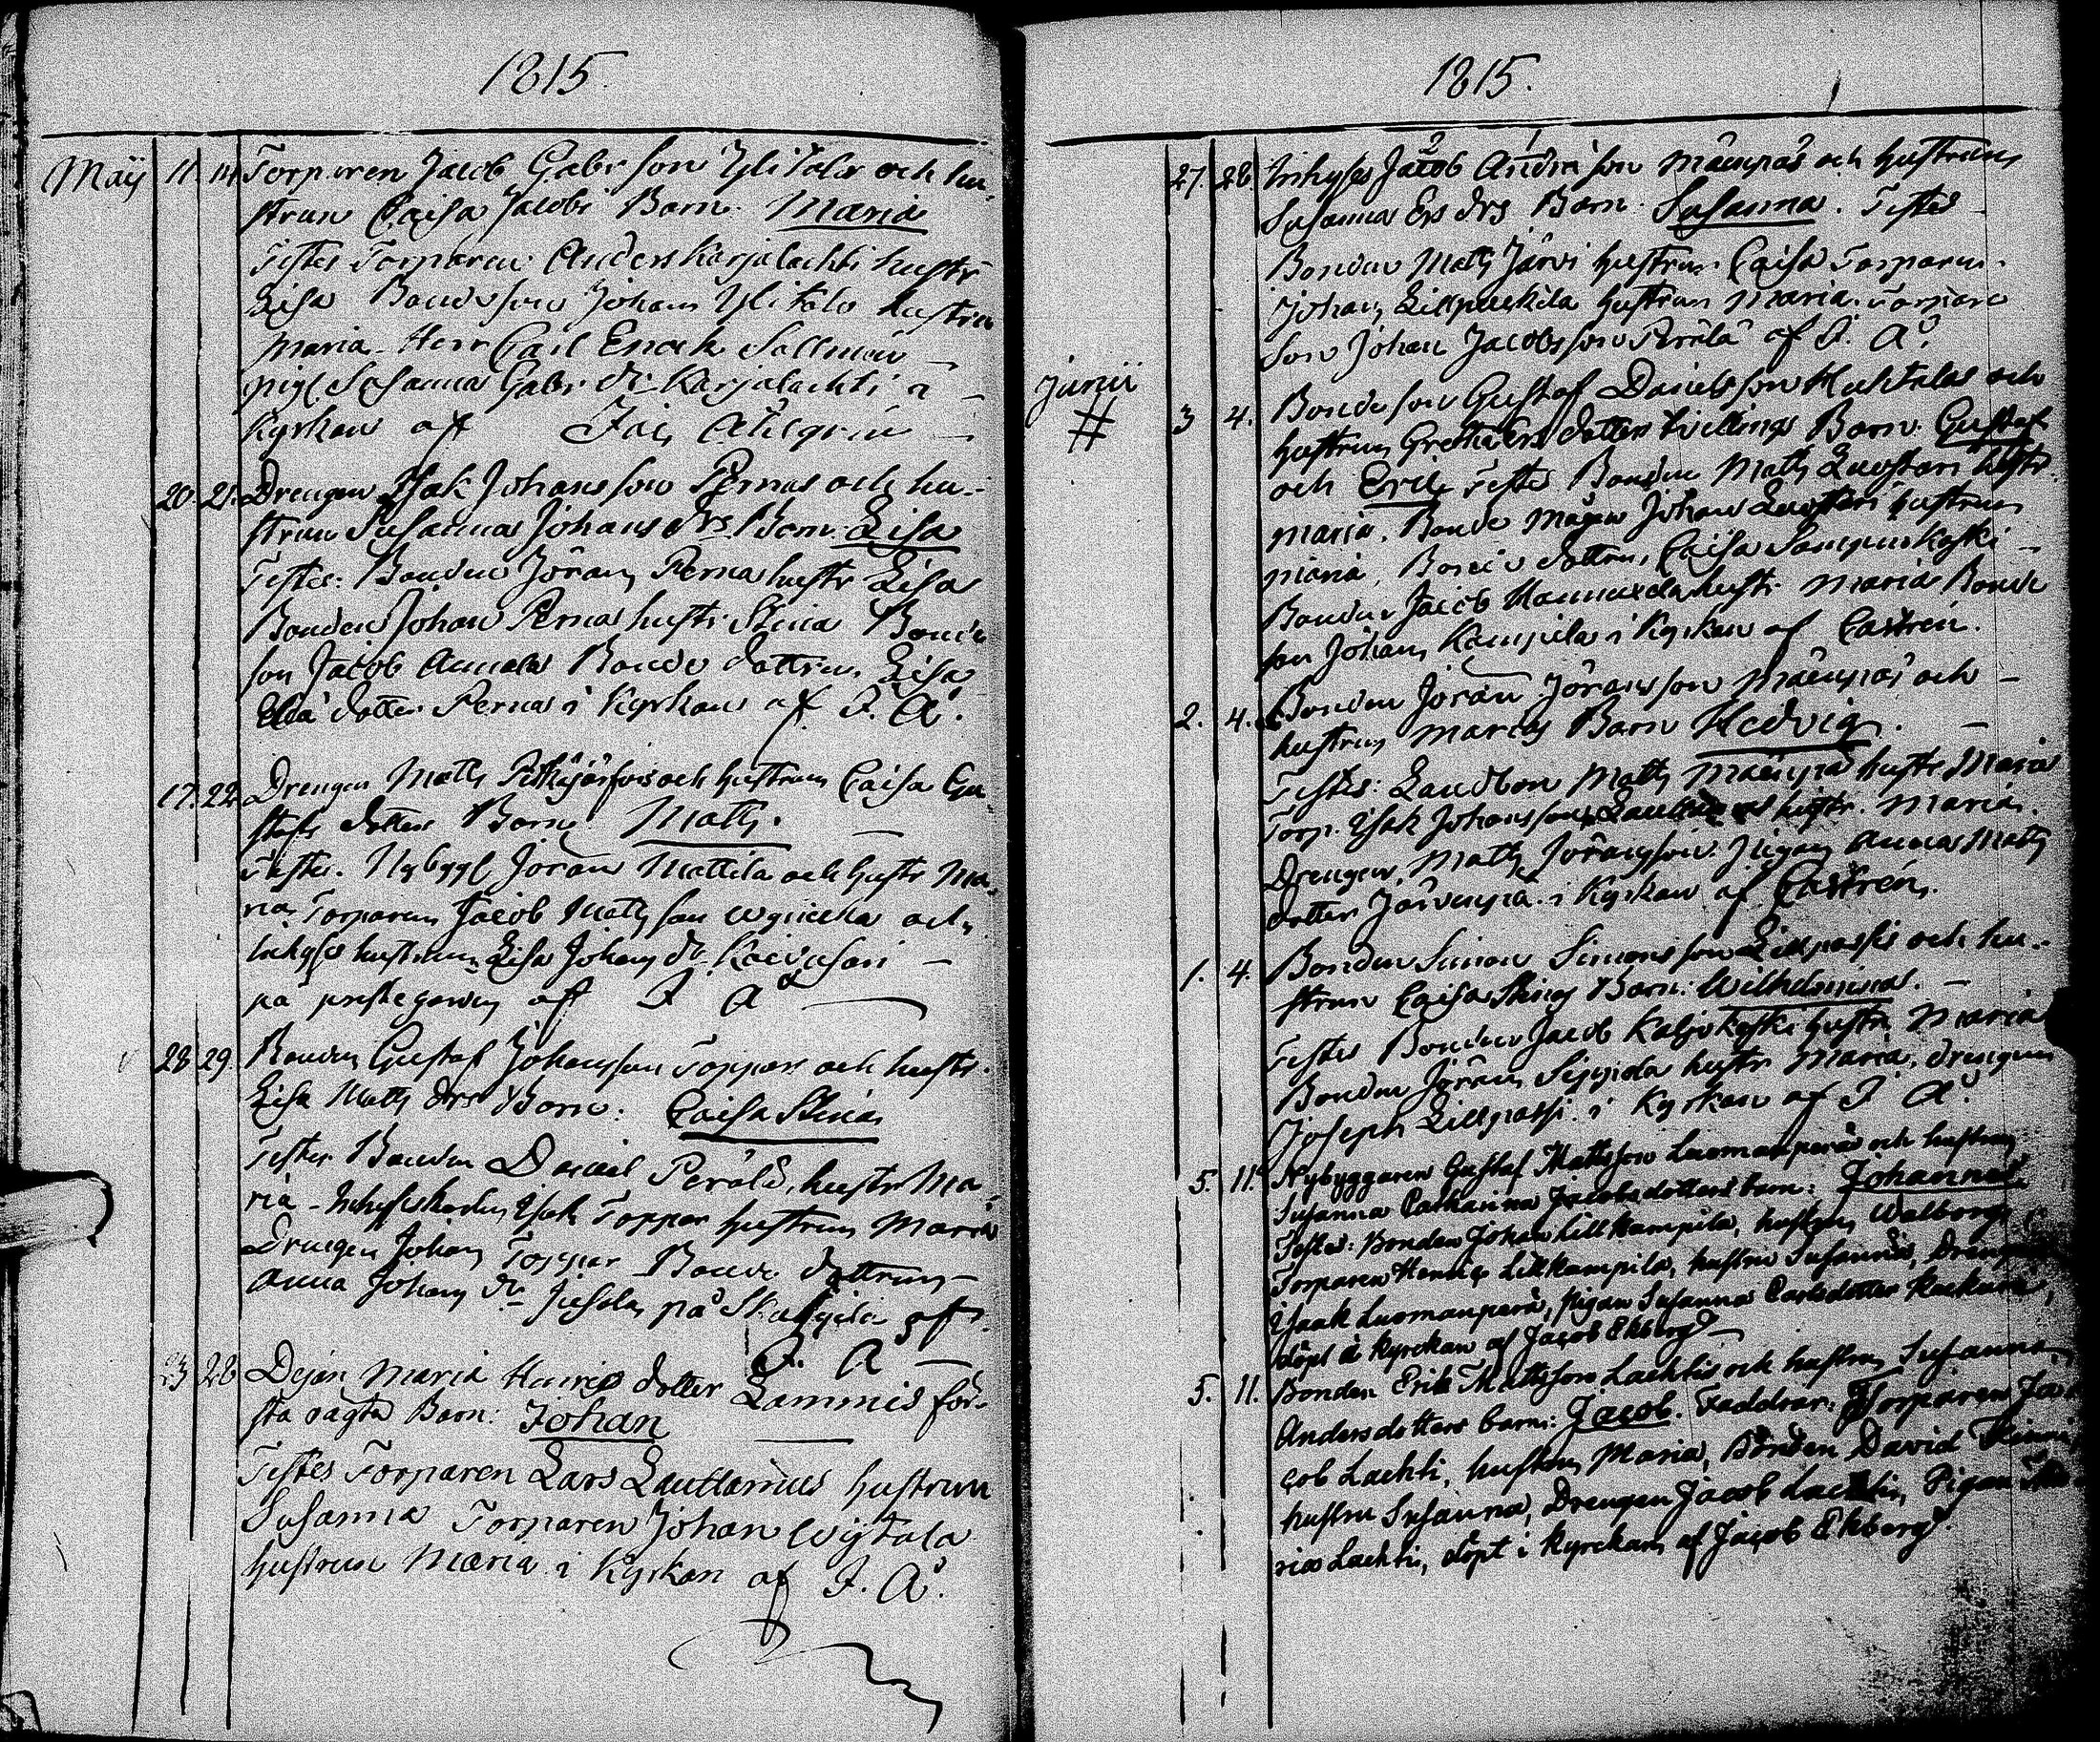 1815.
Maij 11 14 Torparen Jacob Gabr son Yli Talo och hu-
strun Caisa Jacobs Barn. Maria
Testes Torparen Anders Karjalachti hustr
Lisa Bondeson Johan Yli Talo hustru
Maria Herr Carl Enoch Sallmén
pig. Susanna Gabr dr Karjalachti i
Kyrkan af Jac
20. 21. Drengen Isak Johansson Pernas och hu-
strun Susanna Johans drs Barn. Lisa
Testes: Bonden Jöran Perna hustr Lisa
Bonden Johan Pernas hustr Stina Bonde
son Jacob Annala Bonde dottren Lisa
dotter Pernas i Kyrkan af J. A.
17. 22. Drengen Matts och hustrun Caisa Gu-
stafs dotters Barn Matts.
Testes. Nybygg. Jöran Mattila och hustr Ma-
ria Torparen Jacob Matts son och
Inhyses hustrun Lisa Johans dr
på prestegården af J A
28 29. Bonden Gustaf Johansson Toppari och hustr.
Lisa Matts drs Barn. Caisa Stina
Testes Bonden Daniel Perälä, hustr Ma-
ria - Inhyseskarlen Isak Toppar hustrun Maria
Drengen Johan Toppar Bonde dottren
Anna Johans dr på af
J. A
23 28 Dejan Maria Henrics dotter Lammis för-
sta oägta Barn: Johan
Testes Torparen Lars Lauttamus hustrun
Susanna Torparen Johan
hustrun Maria i Kyrkan af J. A.
1815.
2 1
27. 28. Inhyses Jacob Andrs son Mäenpää och hustrun
Susanna Ers drs Barn. Susanna. Testes
Bonden Matts Järvi hustrun Caisa Torparen
Johan hustrun Maria. Torpare
son Johan Jacobsson Perälä af J. A.
Junii
# 3 4. Bondeson Gustaf Danielsson Huhtala och
hustrun Gretha Ers dotters tvillings Barn Gustaf
och Eric Testes Bonden Matts Luostari hustr
Maria. Bonde mågen Johan Luostari hustrun
Maria, Bonde dottren Caisa Sampuskoski
Bonden Jacob Hannuxela hustr Maria Bonde
son Johan Kampila i Kyrkan af Castrén.
2. 4. Bonden Jöran Jöransson Mäenpää och
hustrun Marias Barn Hedvig.
Testes: Landbon Matts Mäenpää hustr Maria
Torp. Isak Johansson hustr. Maria.
Drengen Matts Jöransson. Pigan Anna Matts
dotter Järvenpää i Kyrkan af Castrén.
1. 4. Bonden Simon Simonsson Lillpassi och hu-
strun Caisa Stinas Barn: Wilhelmina.
Testes Bonden Jacob Kaljakoski hustr Maria
Bonden Jöran Seppida hustr Maria, drengen
Joseph Lillpassi i Kyrkan af J. A.
5. 11. Nybyggaren Gustaf Mattsson Luomanperä och hustrun
Susanna Catharina Jacobsdotters barn: Johanna.
Testes: Bonden Johan Lillkampila, hustrun Walborg,
Torparen Henric Lillkampila, hustru Susanna, Drengen
Isaak Luomanperä, Pigan Susanna Carlsdotter
döpt i kyrckan af Jacob Ekberg
5. 11. Bonden Erik Mattsson Lachti och hustrun Susanna
Andersdotters barn: Jacob. Faddrar: Torparen Ja-
cob Lachti, hustrun Maria, Bonden David
hustru Susanna, Drengen Jacob Lachti, Pigan
Lachti, döpt i kyrckan af Jacob Ekberg.